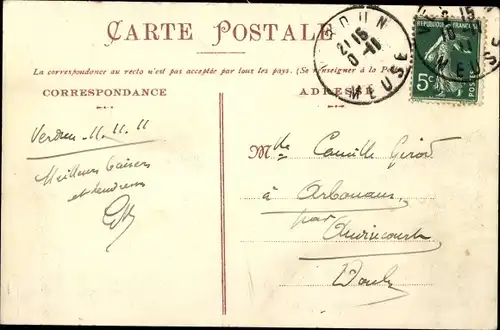 CARTE POSTALE
La correspondance au recto n'est pas acceptée par tous les pays. (Se renseigner à la Po
CORRESPONDANCE
ADRESSE
DUN
21 15
MEUSE
REPUBLIQUE FRANÇAISE
5c
POSTES
15
MEUSE
Verdun 11.11.11
Meilleurs baisers
et tendresses
Mlle Camille Girod
à Arbouans
par Audincourt
Doubs